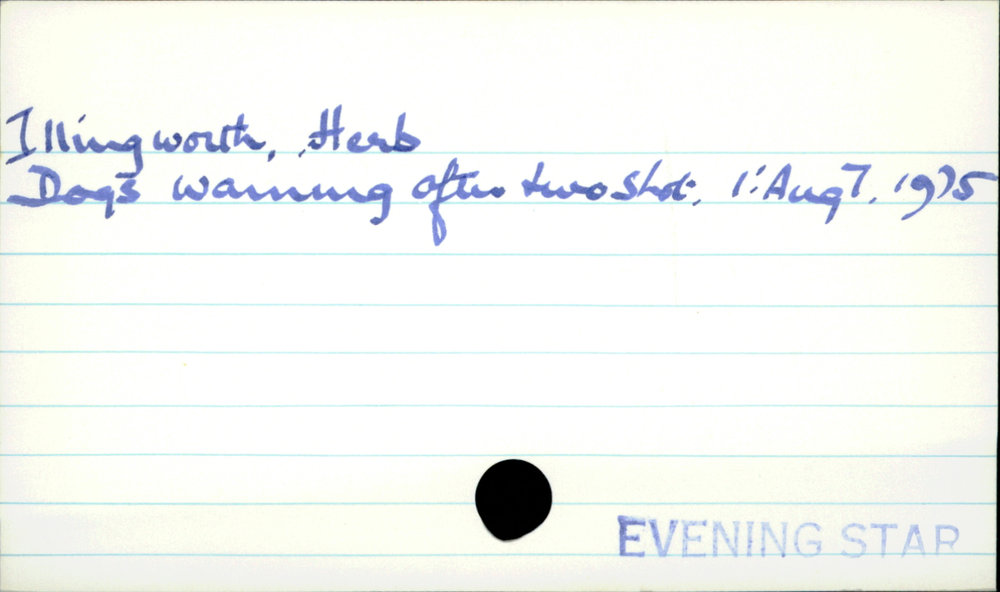 Illingworth, Herb
Dog's warning after two shot, 1: Aug 7, 1975
EVENING STAR